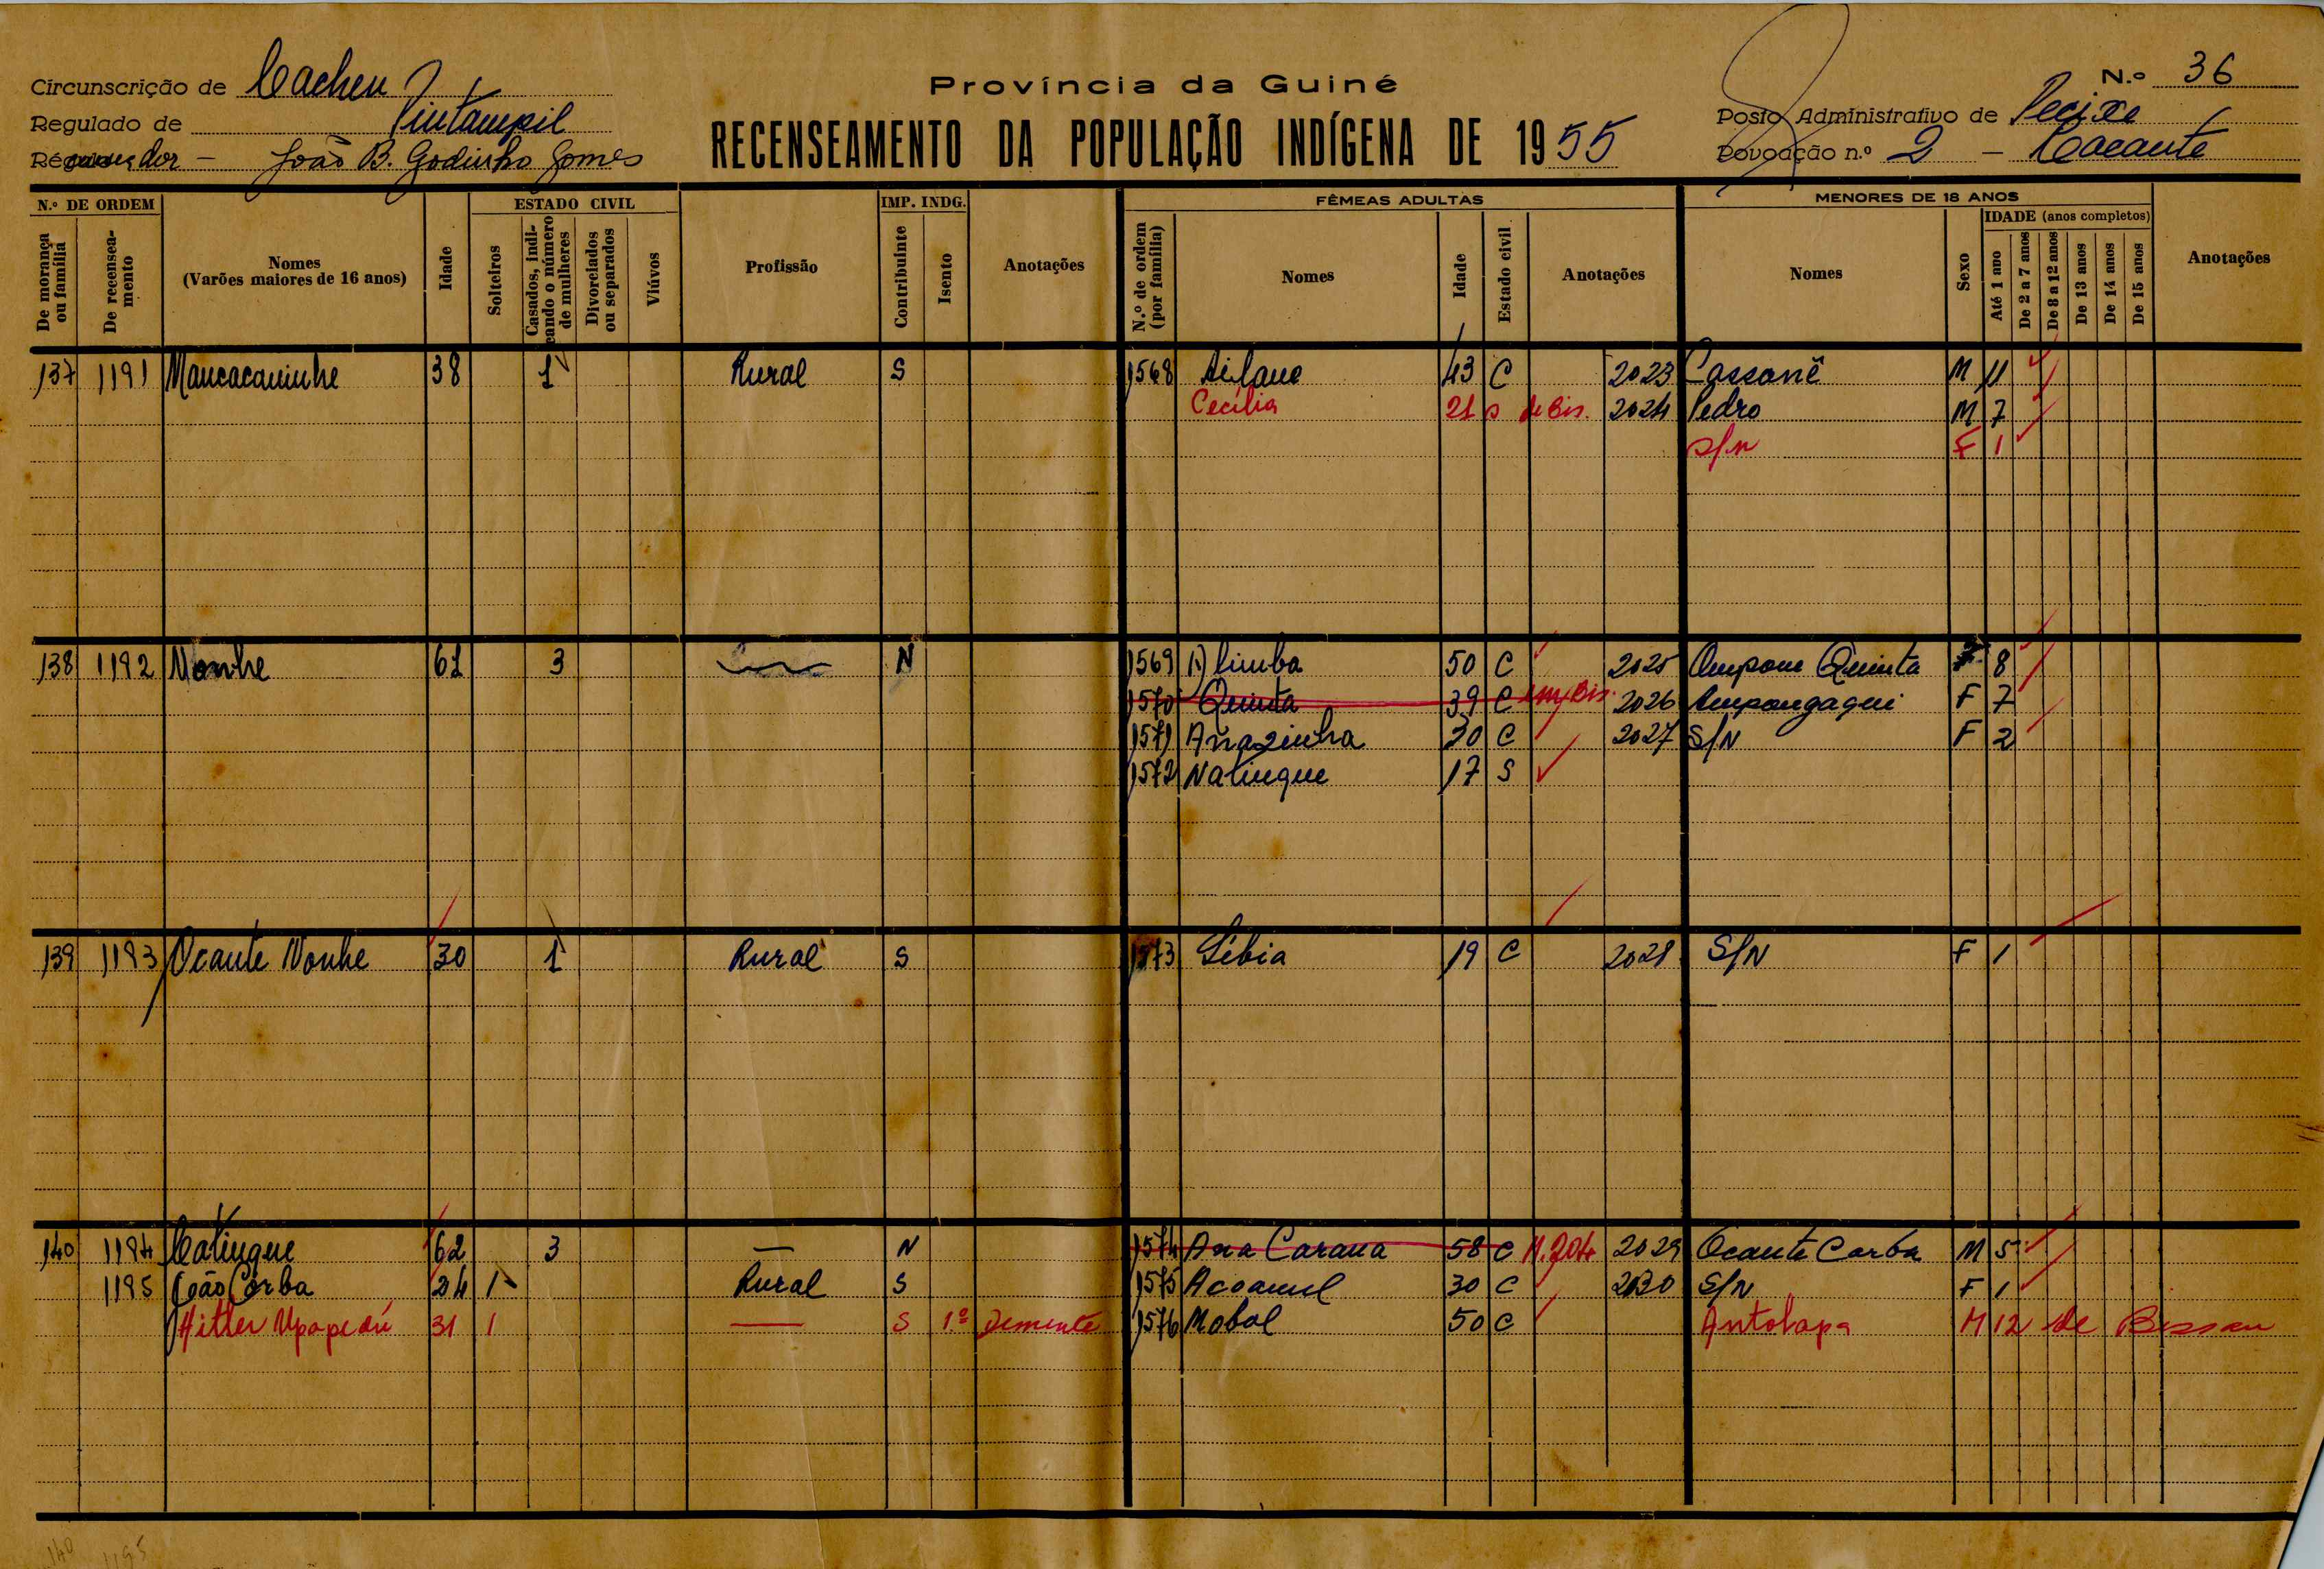 Circunscrição de Cacheu
Regulado de Pintampil
Recenseador - João B. Godinho Gomes
Província da Guiné
RECENSEAMENTO DA POPULAÇÃO INDÍGENA DE 1955
N.º 36
Posto Administrativo de Pecixe
Povoação n.º 2 - Cacante
N.º DE ORDEM
De morança ou família
De recenseamento
Nomes
(Varões maiores de 16 anos)
Idade
ESTADO CIVIL
Solteiros
Casados, indicando o número de mulheres
Divorciados ou separados
Viúvos
Profissão
IMP. INDG.
Contribuinte
Isento
Anotações
FÊMEAS ADULTAS
N.º de ordem (por família)
Nomes
Idade
Estado civil
Anotações
MENORES DE 18 ANOS
Nomes
Sexo
IDADE (anos completos)
Até 1 ano
De 2 a 7 anos
De 8 a 12 anos
De 13 anos
De 14 anos
De 15 anos
Anotações
137 1191 Mancacaninhe 38 1 Rural S 1568 43 C 2023 Cassanê M 11
Cecília 21 S de Bis. 2024 Pedro M 7
S/N F 1
138 1192 Nonhe 61 3 N 1569 50 C 2025 Ampom Quinta 8
1570 Quinta 39 C 2026 Ampongaqui F 7
1571 Anazinha 30 C 2027 S/N F 2
1572 Natinque 17 S
139 1193 Ocante Nonhe 30 1 Rural S 1573 Sébia 19 C 2028 S/N F 1
140 1194 Catinque 62 3 — N 1574 Ana Carana 58 C M.204 2029 Ocante Corba M 5
1195 João Corba 24 1 Rural S 1575 Acoamel 30 C 2030 S/N F 1
Hitler Upapedú 31 1 — S 1º Demente 1576 Mobal 50 C Antolapa M 12 de Bissau
140 1195